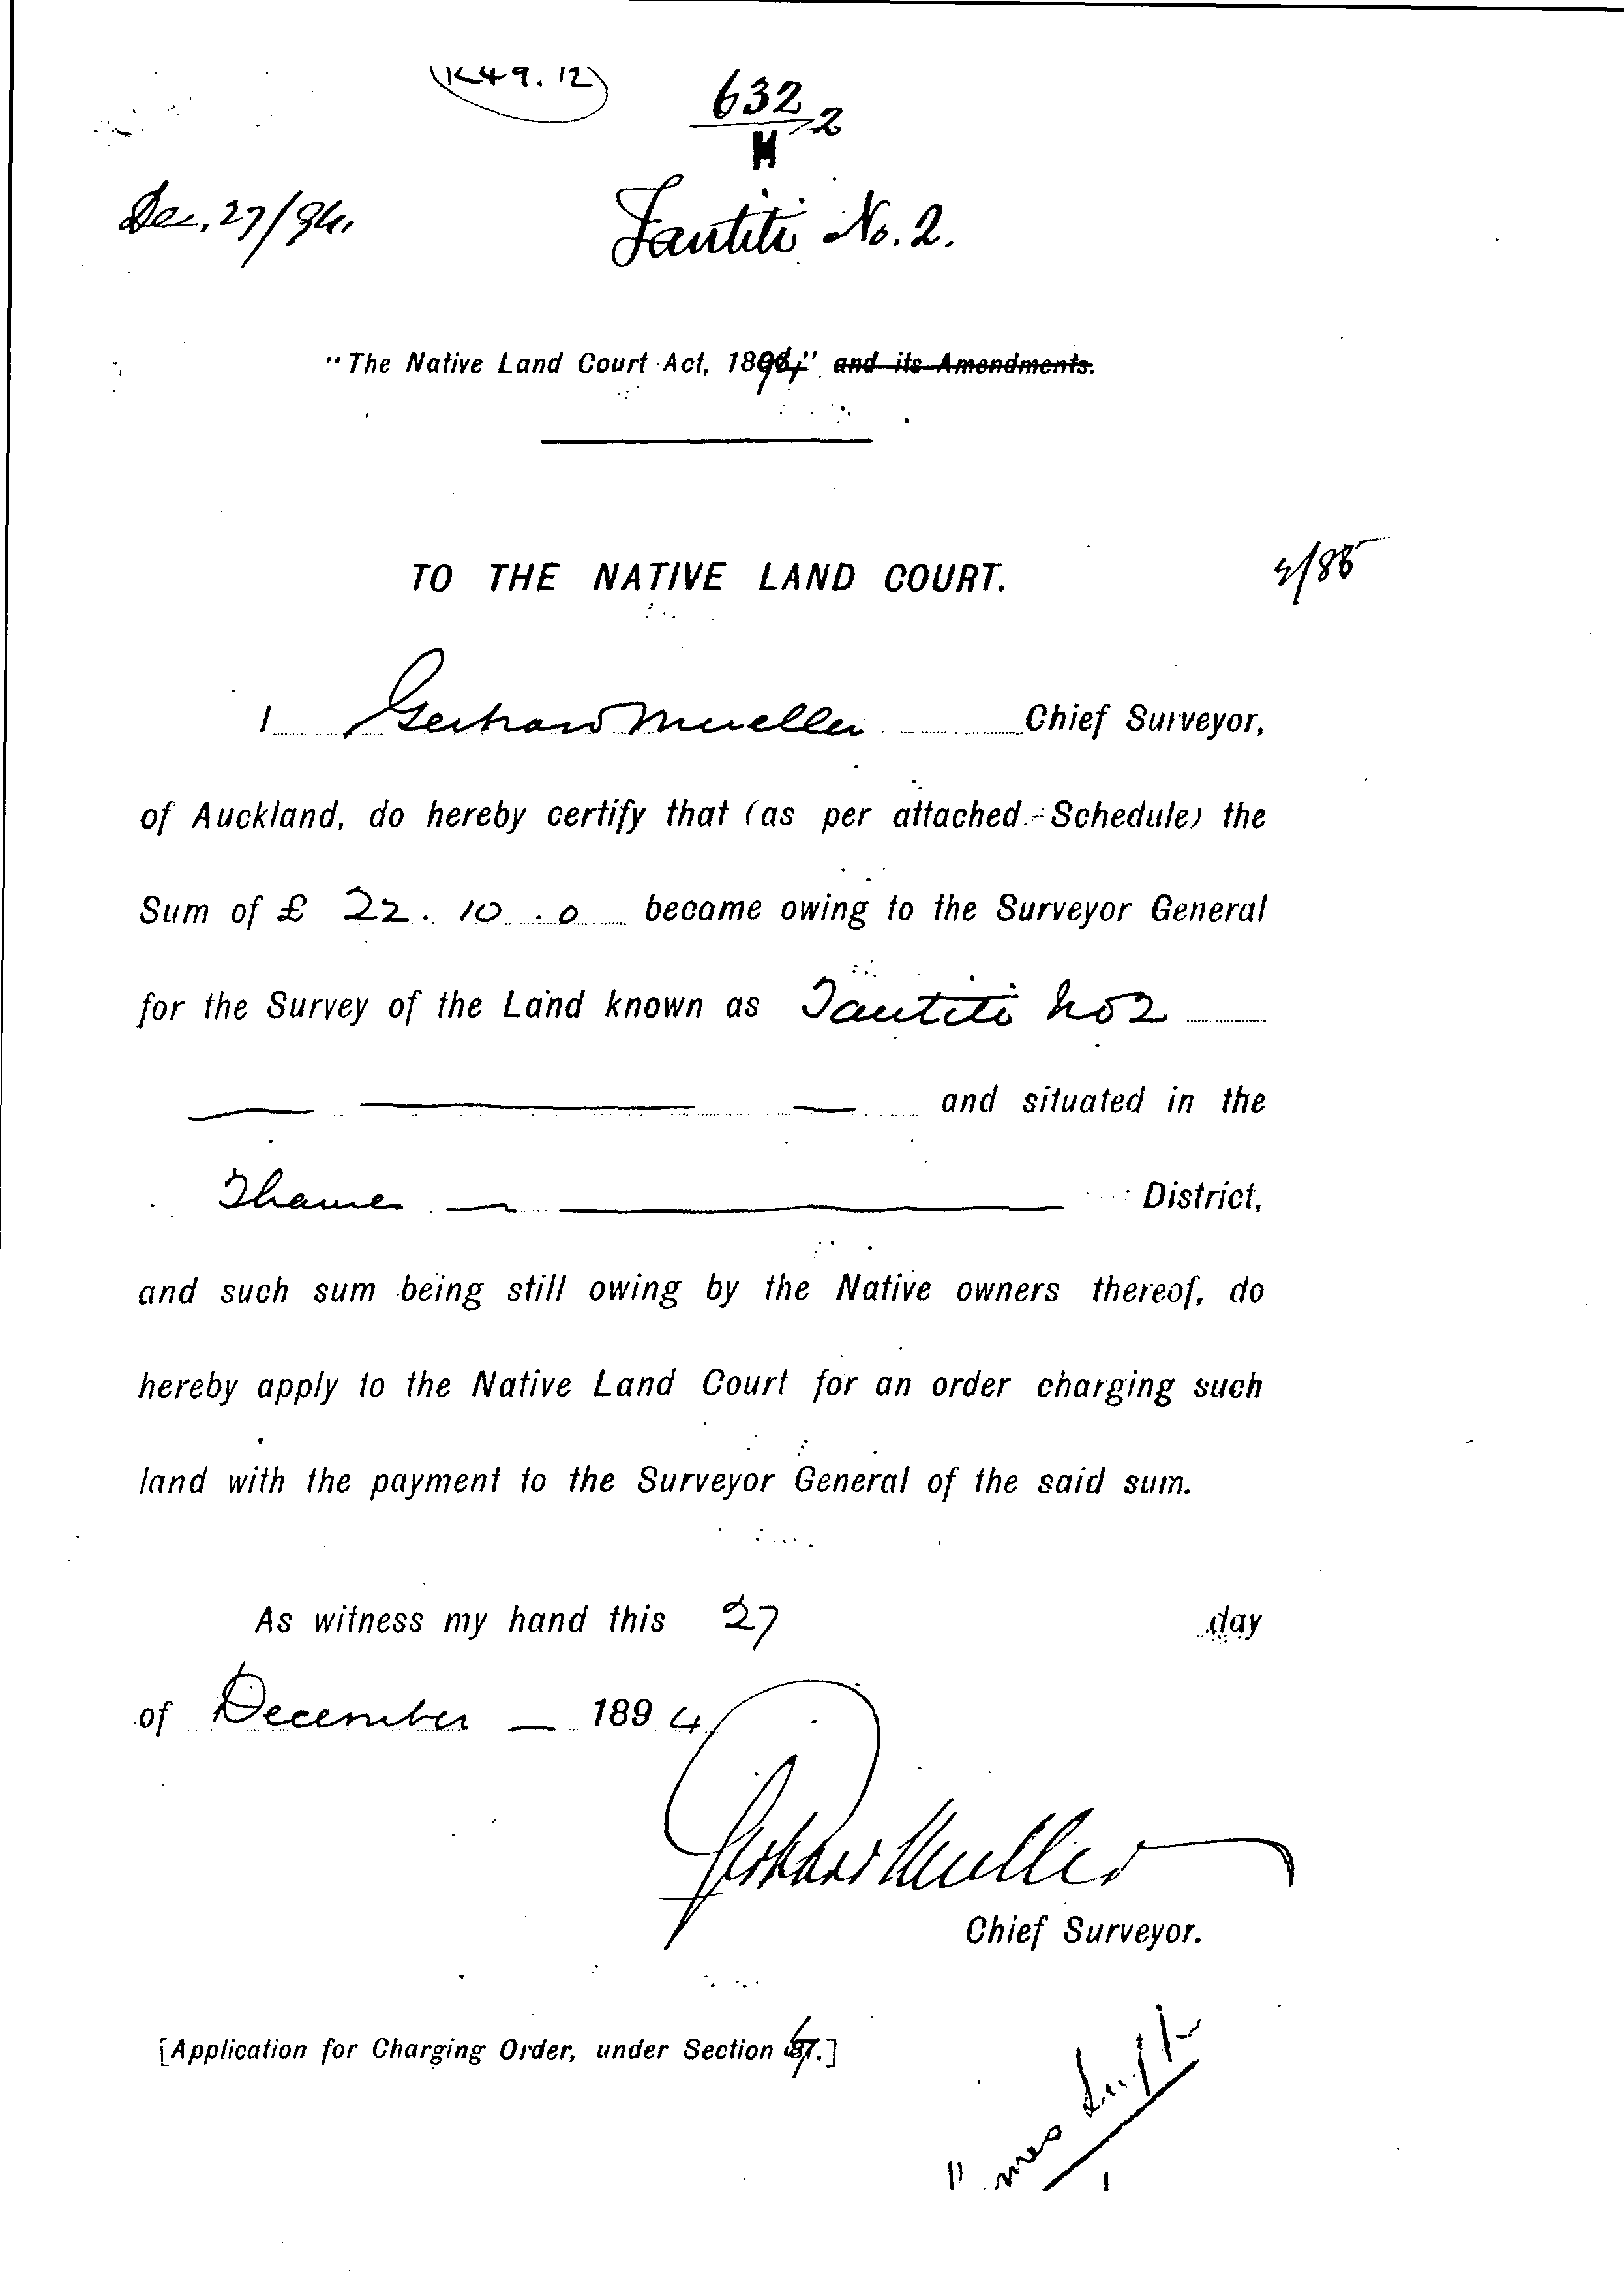 (K49.12)
632 2
H
Dec. 27/94.
Tautiti No. 2.
"The Native Land Court Act, 1894," and its Amendments.
TO THE NATIVE LAND COURT.
I Gerhard Mueller Chief Surveyor,
of Auckland, do hereby certify that (as per attached Schedule) the
Sum of £ 22. 10. 0 became owing to the Surveyor General
for the Survey of the Land known as Tautiti No 2
and situated in the
Thames District,
and such sum being still owing by the Native owners thereof, do
hereby apply to the Native Land Court for an order charging such
land with the payment to the Surveyor General of the said sum.
As witness my hand this 27 day
of December 1894
Gerhard Mueller
Chief Surveyor.
[Application for Charging Order, under Section .]